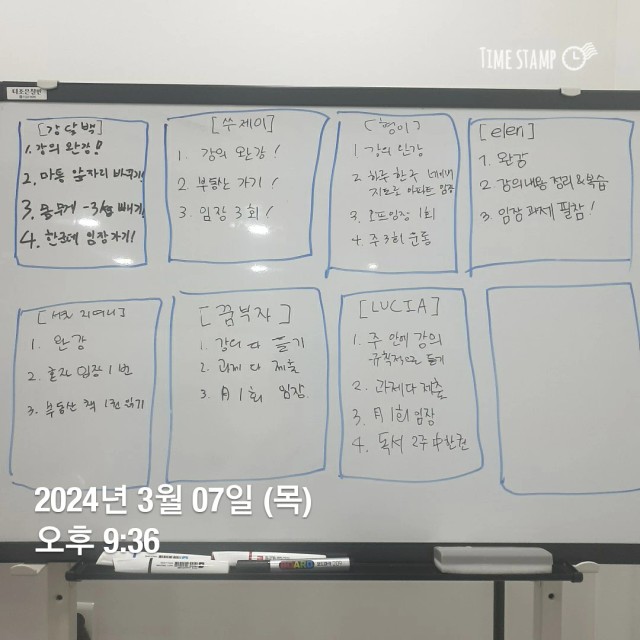 TIME STAMP
[강달백]
1. 강의 완강!
2. 마통 앞자리 바꾸기!
3. 몸무게 -3kg 빼기!
4. 한군데 임장가기!
[쑤제이]
1. 강의 완강!
2. 부동산 가기!
3. 임장 3회!
[형이]
1. 강의 완강
2. 하루 한곳 네이버
지도로 아파트 임장
3. 오프임장 1회
4. 주3회 운동
[elen]
1. 완강
2. 강의내용 정리&복습
3. 임장 과제 필참!
1. 완강
2. 혼자 임장 1번
3. 부동산 책 1권 읽기
[꿈부자]
1. 강의 다 듣기
2. 과제 다 제출
3. 月1회 임장
[LUCIA]
1. 주 안에 강의
규칙적으로 듣기
2. 과제다제출
3. 月1회 임장
4. 독서 2주中한권
2024년 3월 07일 (목)
오후 9:36